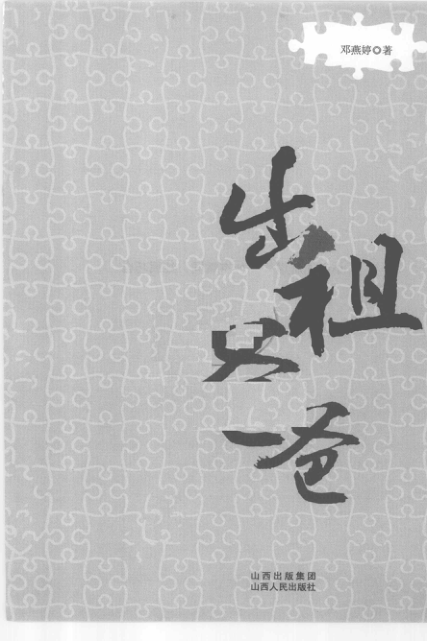 邓燕婷◎著
出
租
爸
山西出版集团
山西人民出版社